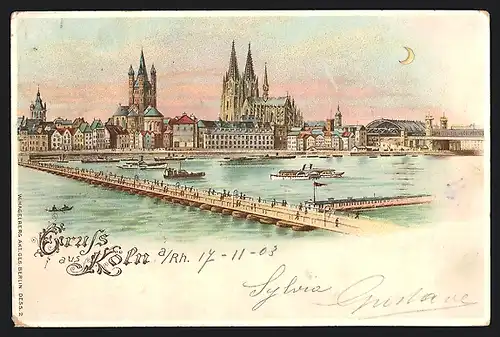 Gruss
aus Köln a/Rh. 17-11-03
Sylvia Gustave
W. HAGELBERG AKT. GES. BERLIN DESS. 2